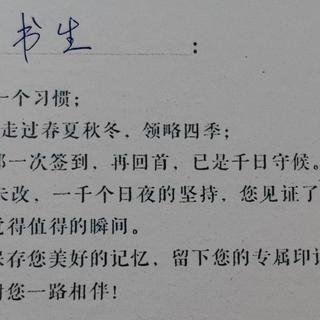 书生：
一个习惯；
走过春夏秋冬，领略四季；
一次签到，再回首，已是千日守候。
未改，一千个日夜的坚持，您见证了
得值得的瞬间。
保存您美好的记忆，留下您的专属印记
您一路相伴！